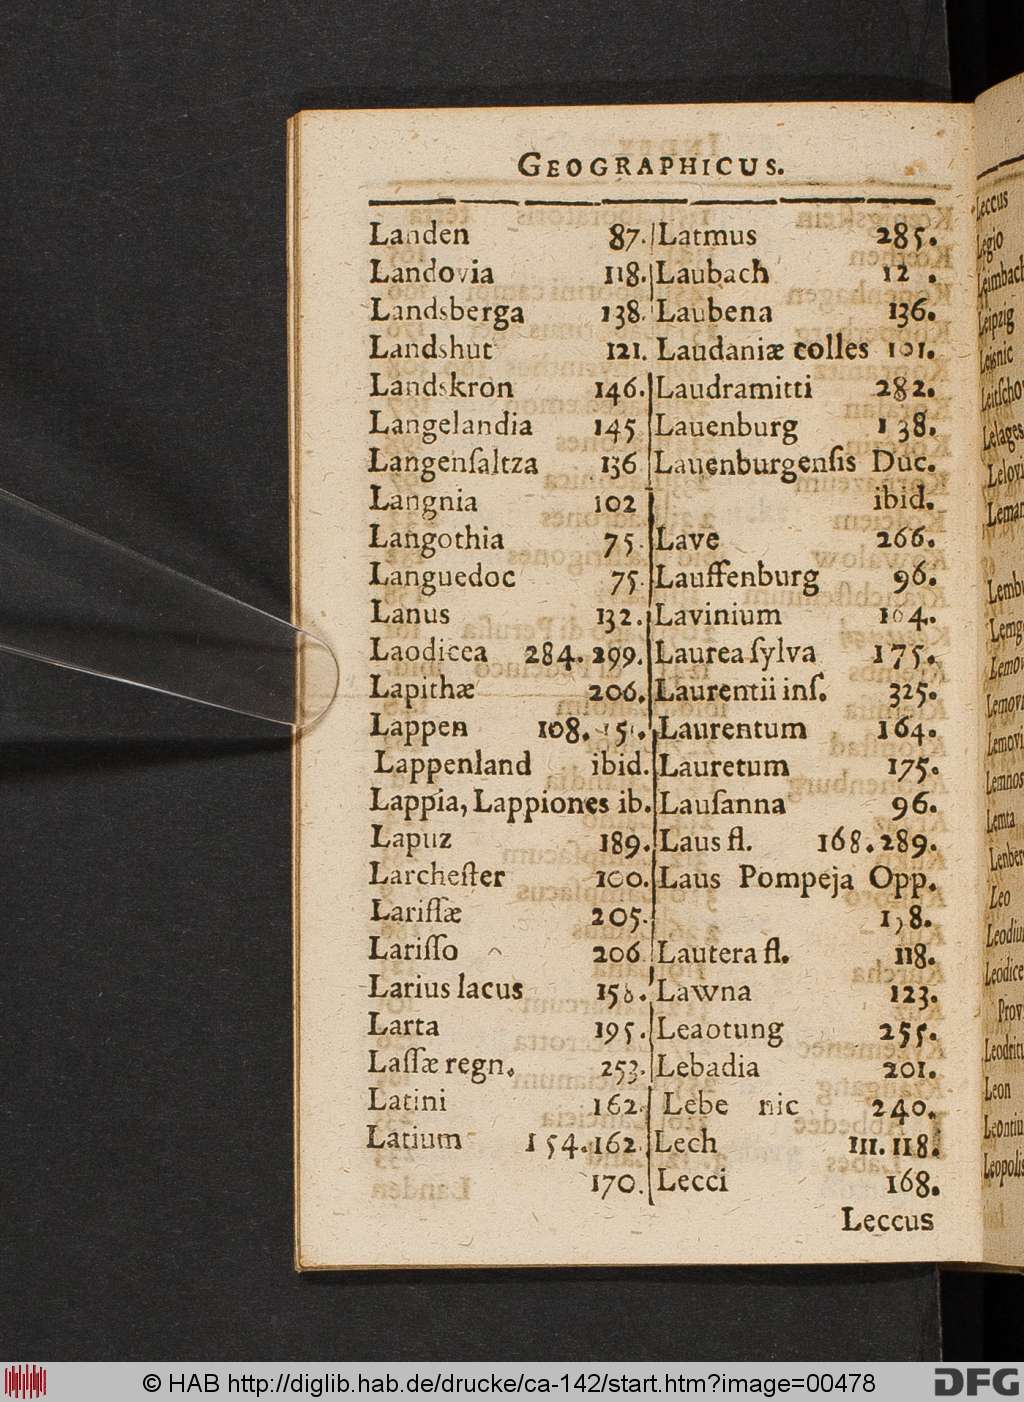 GEOGRAPHICUS.
Landen 87.
Landovia 118.
Landsberga 138.
Landshut 121.
Landskron 146.
Langelandia 145
Langenſaltza 136
Langnia 102
Langothia 75.
Languedoc 75.
Lanus 132.
Laodicea 284. 299.
Lapithæ 206.
Lappen 108.
Lappenland ibid.
Lappia, Lappiones ib.
Lapuz 189.
Larcheſter 100.
Lariſſæ 205.
Lariſſo 206
Larius lacus
Larta 195.
Laſſæ regn. 253.
Latini 162.
Latium 154. 162.
170.
Latmus 285.
Laubach
Laubena 136.
Laudaniæ colles 101.
Laudramitti 282.
Lauenburg 138.
Lauenburgenſis Duc.
ibid.
Lave 266.
Lauffenburg 96.
Lavinium 164.
Laurea ſylva 175.
Laurentii inſ. 325.
Laurentum 164.
Lauretum 175.
Lauſanna 96.
Laus fl. 168. 289.
Laus Pompeja Opp.
Lautera fl. 118.
Lawna 123.
Leaotung 255.
Lebadia 201.
Lebe nic 240.
Lech 111. 118.
Lecci 168.
Leccus
Leccus
Legio
Leimbach
Leipzig
Leisnic
Lelages
Lemnos
Lemta
Leo
Leon
© HAB http://diglib.hab.de/drucke/ca-142/start.htm?image=00478
DFG